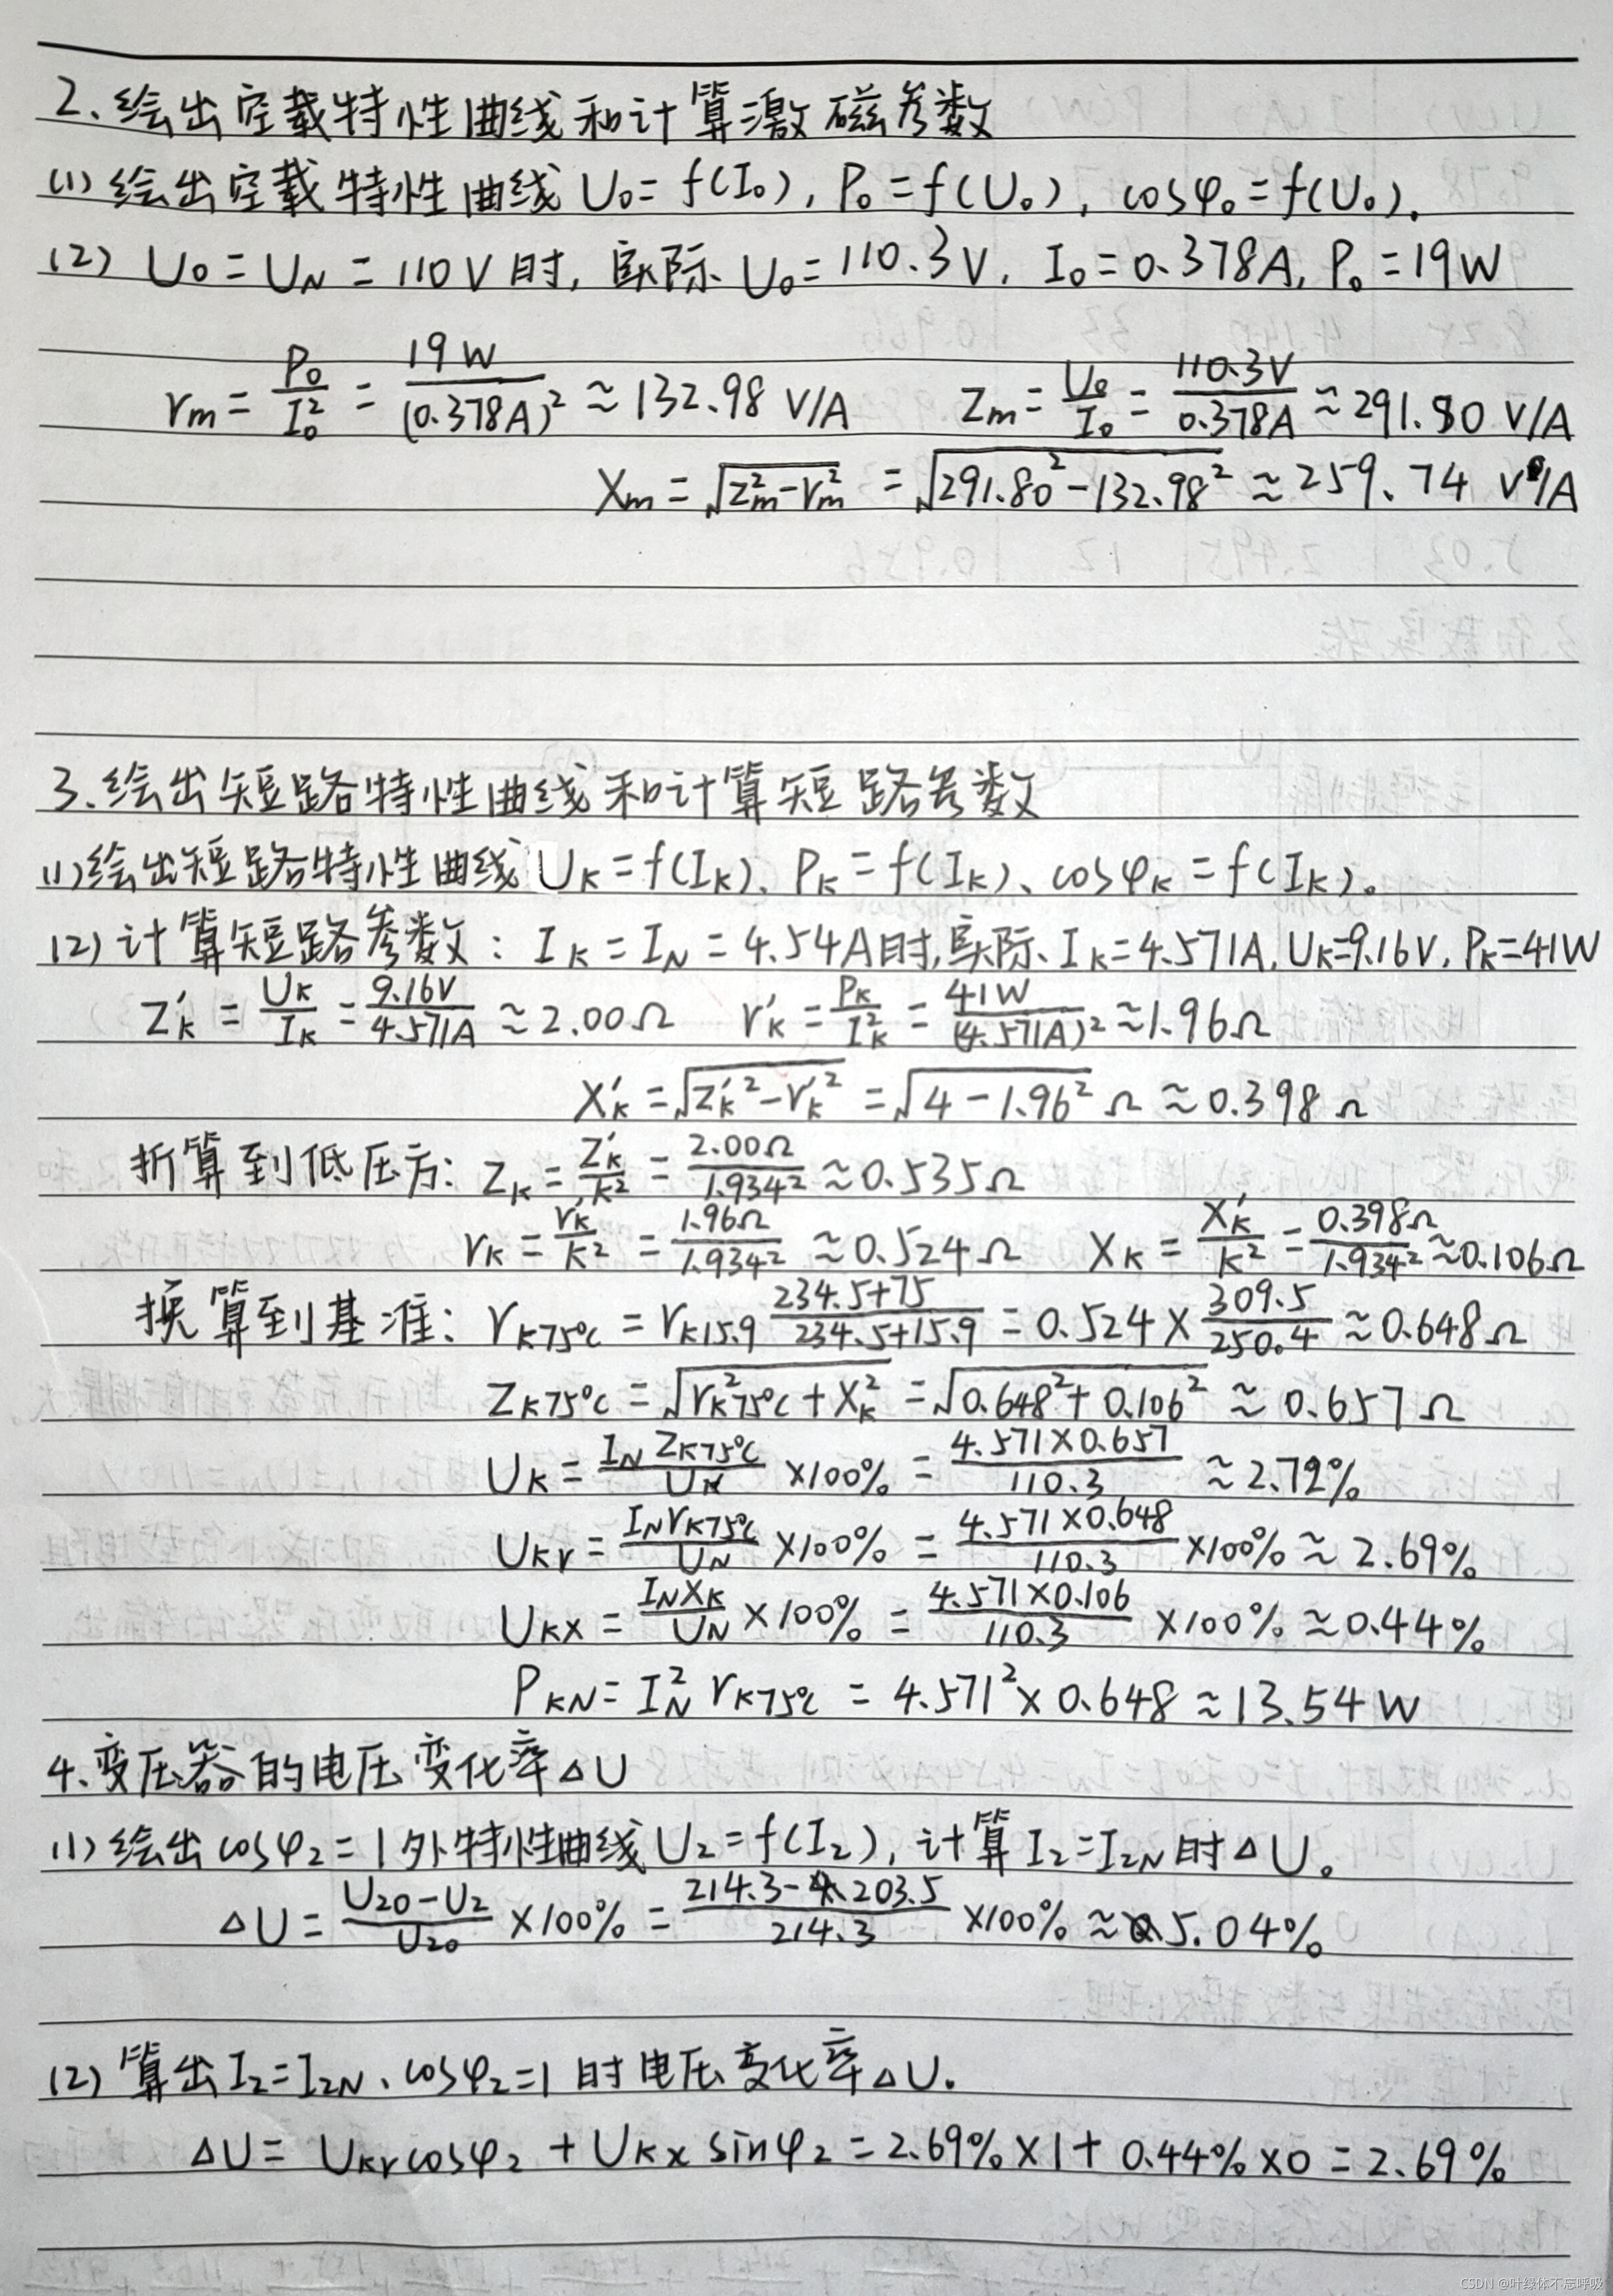 2.绘出空载特性曲线和计算激磁参数
(1)绘出空载特性曲线U₀=f(I₀),P₀=f(U₀),cosφ₀=f(U₀).
(2) U₀=U_N=110V时,实际U₀=110.3V, I₀=0.378A, P₀=19W
r_m=P₀/I₀²=19W/(0.378A)²≈132.98 V/A Z_m=U₀/I₀=110.3V/0.378A≈291.80 V/A
X_m=√(Z_m²-r_m²)=√(291.80²-132.98²)≈259.74 V/A
3.绘出短路特性曲线和计算短路参数
(1)绘出短路特性曲线U_K=f(I_K)、P_K=f(I_K)、cosφ_K=f(I_K)。
(2)计算短路参数:I_K=I_N=4.54A时,实际I_K=4.571A,U_K=9.16V,P_K=41W
Z'_K=U_K/I_K=9.16V/4.571A≈2.00Ω r'_K=P_K/I_K²=41W/(4.571A)²≈1.96Ω
X'_K=√(Z'_K²-r'_K²)=√(4-1.96²)Ω≈0.398Ω
折算到低压方:Z_K=Z'_K/K²=2.00Ω/1.934²≈0.535Ω
r_K=r'_K/K²=1.96Ω/1.934²≈0.524Ω X_K=X'_K/K²=0.398Ω/1.934²≈0.106Ω
换算到基准:r_K75℃=r_K15.9 (234.5+75)/(234.5+15.9)=0.524×309.5/250.4≈0.648Ω
Z_K75℃=√(r_K²75℃+X_K²)=√(0.648²+0.106²)≈0.657Ω
U_K=I_N Z_K75℃/U_N×100%=4.571×0.657/110.3≈2.72%
U_Kr=I_N r_K75℃/U_N×100%=4.571×0.648/110.3×100%≈2.69%
U_KX=I_N X_K/U_N×100%=4.571×0.106/110.3×100%≈0.44%
P_KN=I_N² r_K75℃=4.571²×0.648≈13.54W
4.变压器的电压变化率△U
(1)绘出cosφ₂=1外特性曲线U₂=f(I₂),计算I₂=I₂N时△U。
△U=(U₂₀-U₂)/U₂₀×100%=(214.3-203.5)/214.3×100%≈5.04%
(2)算出I₂=I₂N、cosφ₂=1时电压变化率△U.
△U=U_Kr cosφ₂+U_Kx sinφ₂=2.69%×1+0.44%×0=2.69%
CSDN @叶绿体不忘呼吸